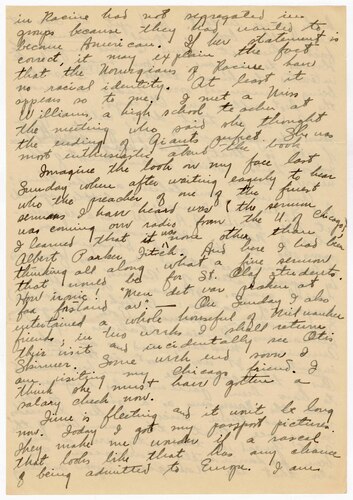 in Racine had not segregated in
groups because they had wanted to
become American. If her statement is
correct, it may explain the fact
that the Norwegians of Racine have
no racial identity. At least it
appears so to me. I met a Miss
Williams, a high school teacher at
the meeting who said she thought
the ending of Giants perfect. She was
most enthusiastic about the book.
Imagine the look on my face last
Sunday when after waiting eagerly to hear
who the preacher of one of the finest
sermons I have heard was (the sermon
was coming over radio from the U. of Chicago)
I learned that it was none other than
Albert Parker Fitch. And here I had been
thinking all along what a fine sermon
that would be for St. Olaf students.
How ironic! "Men det var
— On Sunday I also
entertained a whole houseful of Milwaukee
friends; in two weeks I shall return
their visit and incidentally see Otis
Skinner. Some week end soon I
am visiting my Chicago friend. I
think she must have gotten a
salary check now.
Time is fleeting and it won't be long
now. Today I got my passport pictures.
They make me wonder if a rascal
that looks like that has any chance
of being admitted to Europe. I am